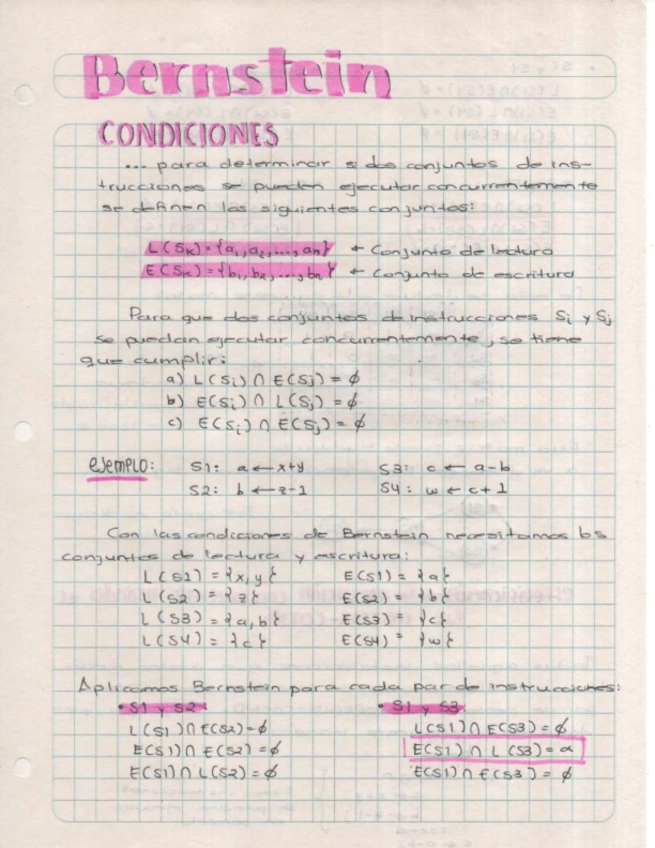 Bernstein
CONDICIONES
... para determinar si dos conjuntos de ins-
trucciones se pueden ejecutar concurrentemente
se definen los siguientes conjuntos:
L(Sk)={a1,a2,...,an} ← Conjunto de lectura
E(Sk)={b1,b2,...,bn} ← Conjunto de escritura
Para que dos conjuntos de instrucciones Si y Sj
se puedan ejecutar concurrentemente, se tiene
que cumplir:
a) L(Si) ∩ E(Sj) = ∅
b) E(Si) ∩ L(Sj) = ∅
c) E(Si) ∩ E(Sj) = ∅
ejemplo: S1: a ← x+y S3: c ← a-b
S2: b ← z-1 S4: w ← c+1
Con las condiciones de Bernstein necesitamos los
conjuntos de lectura y escritura:
L(S1) = {x,y} E(S1) = {a}
L(S2) = {z} E(S2) = {b}
L(S3) = {a,b} E(S3) = {c}
L(S4) = {c} E(S4) = {w}
Aplicamos Bernstein para cada par de instrucciones:
• S1 y S2 • S1 y S3
L(S1) ∩ E(S2) = ∅ L(S1) ∩ E(S3) = ∅
E(S1) ∩ E(S2) = ∅ E(S1) ∩ L(S3) = a
E(S1) ∩ L(S2) = ∅ E(S1) ∩ E(S3) = ∅